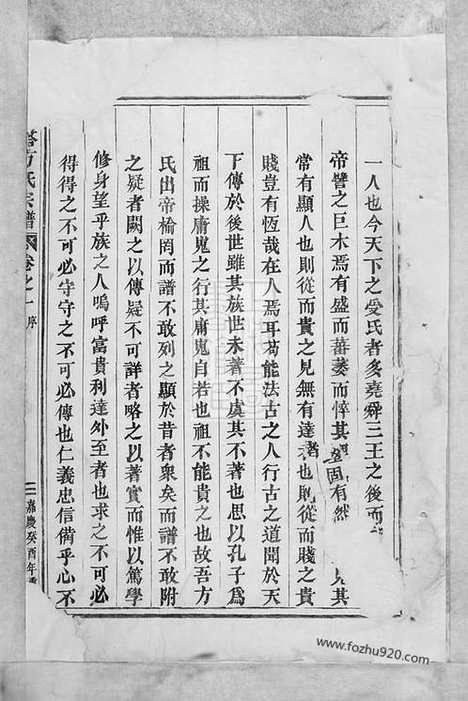 一人也今天下之受氏者多堯舜三王之後而
帝嚳之巨木焉有盛而蕃萎而悴其理固有然 見其
常有顯人也則從而貴之見無有達者也則從而賤之貴
賤豈有恆哉在人焉耳苟能法古之人行古之道聞於天
下傳於後世雖其族世未著不虞其不著也思以孔子為
祖而操庸鬼之行其庸鬼自若也祖不能貴之也故吾方
氏出帝榆罔而譜不敢列之顯於昔者衆矣而譜不敢附
之疑者闕之以傳疑不可詳者略之以著實而惟以篤學
修身望乎族之人嗚呼富貴利達外至者也求之不可必
得得之不可必守守之不可必傳也仁義忠信備乎心不
方氏宗譜 卷之一 序
二 嘉慶癸酉年重
www.fozhu920.com